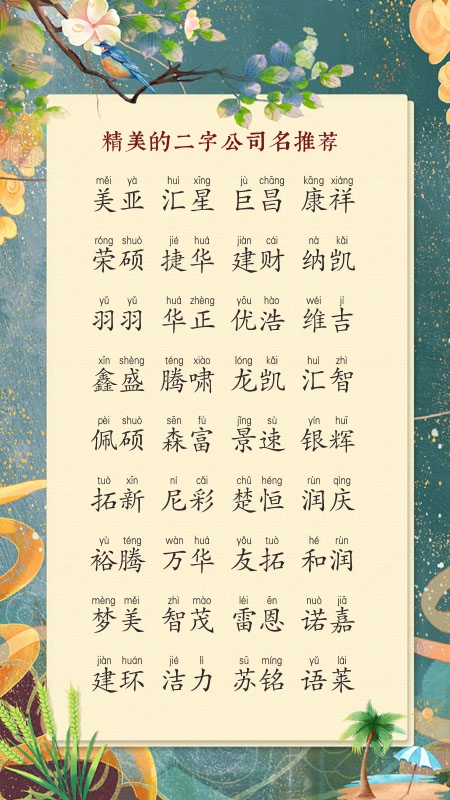 精美的二字公司名推荐
měi yà huì xīng jù chāng kāng xiáng
美亚 汇星 巨昌 康祥
róng shuò jié huá jiàn cái nà kǎi
荣硕 捷华 建财 纳凯
yǔ yǔ huá zhèng yōu hào wéi jí
羽羽 华正 优浩 维吉
xīn shèng téng xiào lóng kǎi huì zhì
鑫盛 腾啸 龙凯 汇智
pèi shuò sēn fù jǐng sù yín huī
佩硕 森富 景速 银辉
tuò xīn ní cǎi chǔ héng rùn qìng
拓新 尼彩 楚恒 润庆
yù téng wàn huá yǒu tuò hé rùn
裕腾 万华 友拓 和润
mèng měi zhì mào léi ēn nuò jiā
梦美 智茂 雷恩 诺嘉
jiàn huán jié lì sū míng yǔ lái
建环 洁力 苏铭 语莱